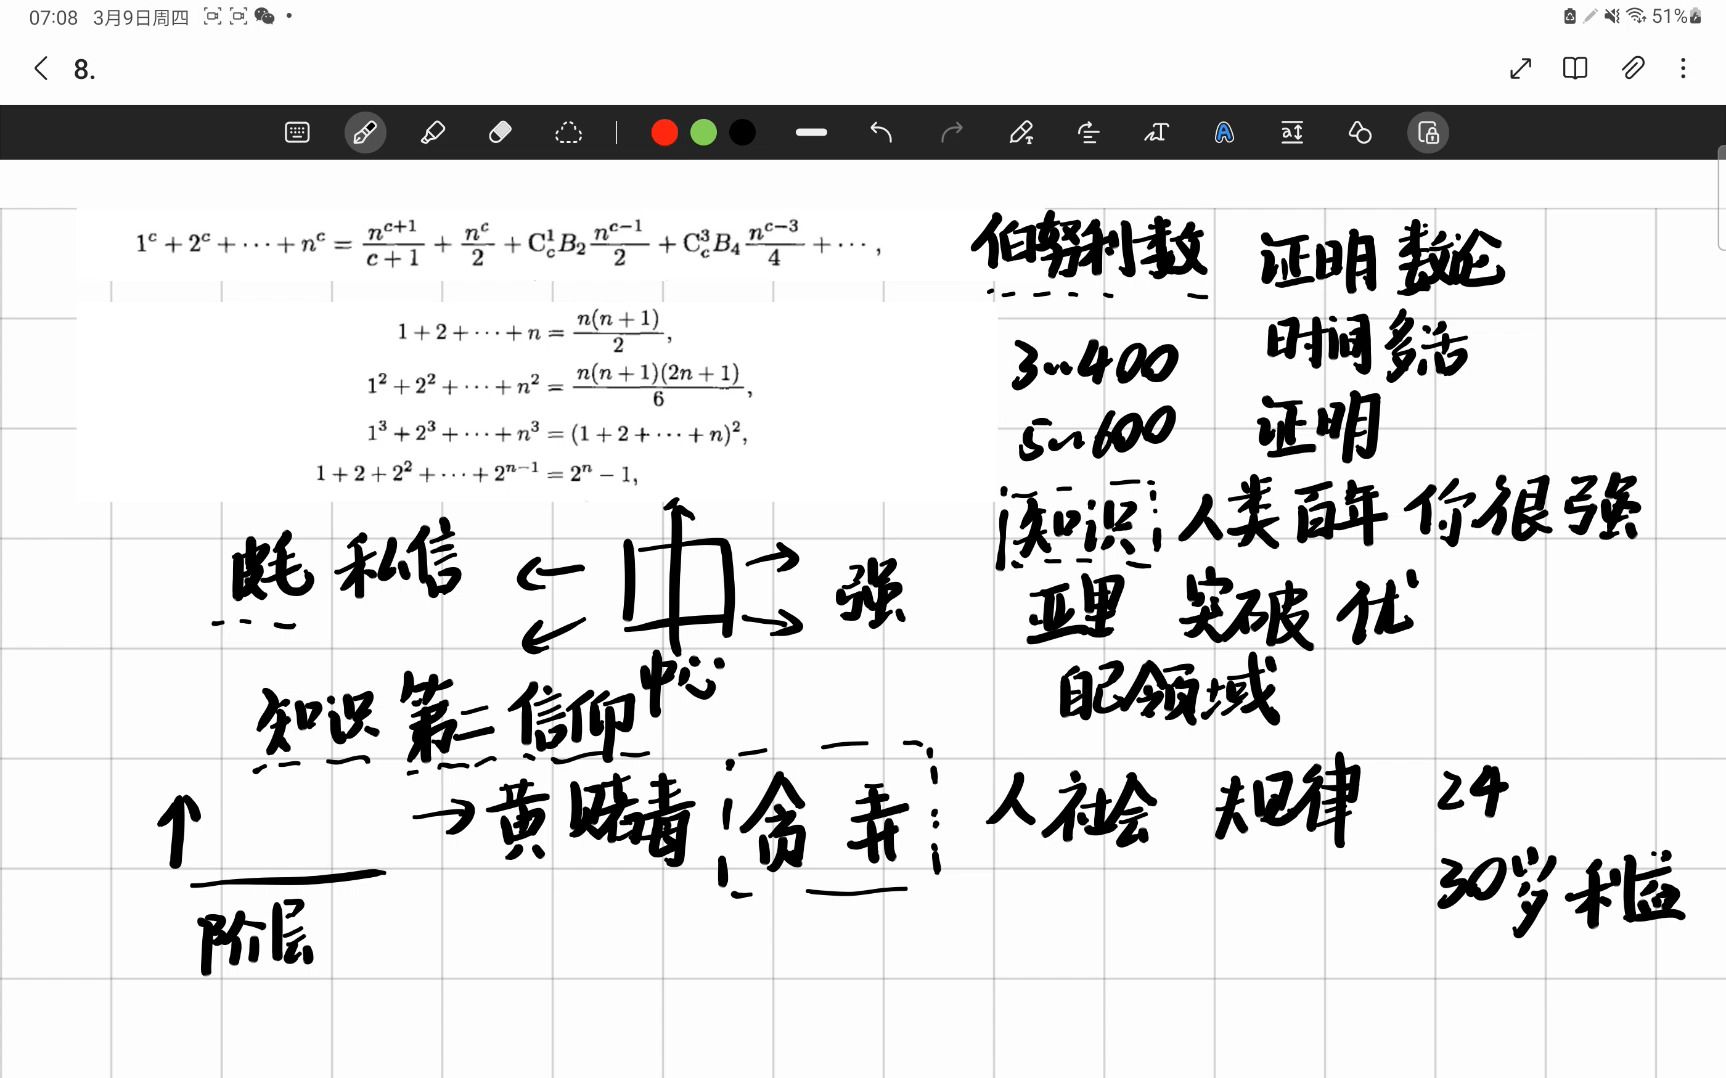 07:08 3月9日周四 51%
8.
1^c + 2^c + ⋯ + n^c = n^{c+1}/(c+1) + n^c/2 + C_c^1 B_2 n^{c-1}/2 + C_c^3 B_4 n^{c-3}/4 + ⋯ ,
1 + 2 + ⋯ + n = n(n+1)/2,
1^2 + 2^2 + ⋯ + n^2 = n(n+1)(2n+1)/6,
1^3 + 2^3 + ⋯ + n^3 = (1 + 2 + ⋯ + n)^2,
1 + 2 + 2^2 + ⋯ + 2^{n-1} = 2^n − 1,
伯努利数 证明 数论
3~400 时间 多活
5~600 证明
知识 人类百年 你很强
亚里 突破 优
自己领域
私信 强
中心
知识 第二 信仰
→ 黄 赌毒 贪 弄 人社会 规律 24
30岁 利益
阶层